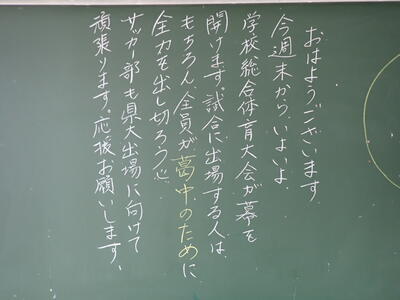 おはようございます
今週末から、いよいよ
学校総合体育大会が幕を
開けます。試合に出場する人は
もちろん、全員が葛中のために
全力を出し切ろう!!
サッカー部も県大出場に向けて
頑張ります。応援お願いします。